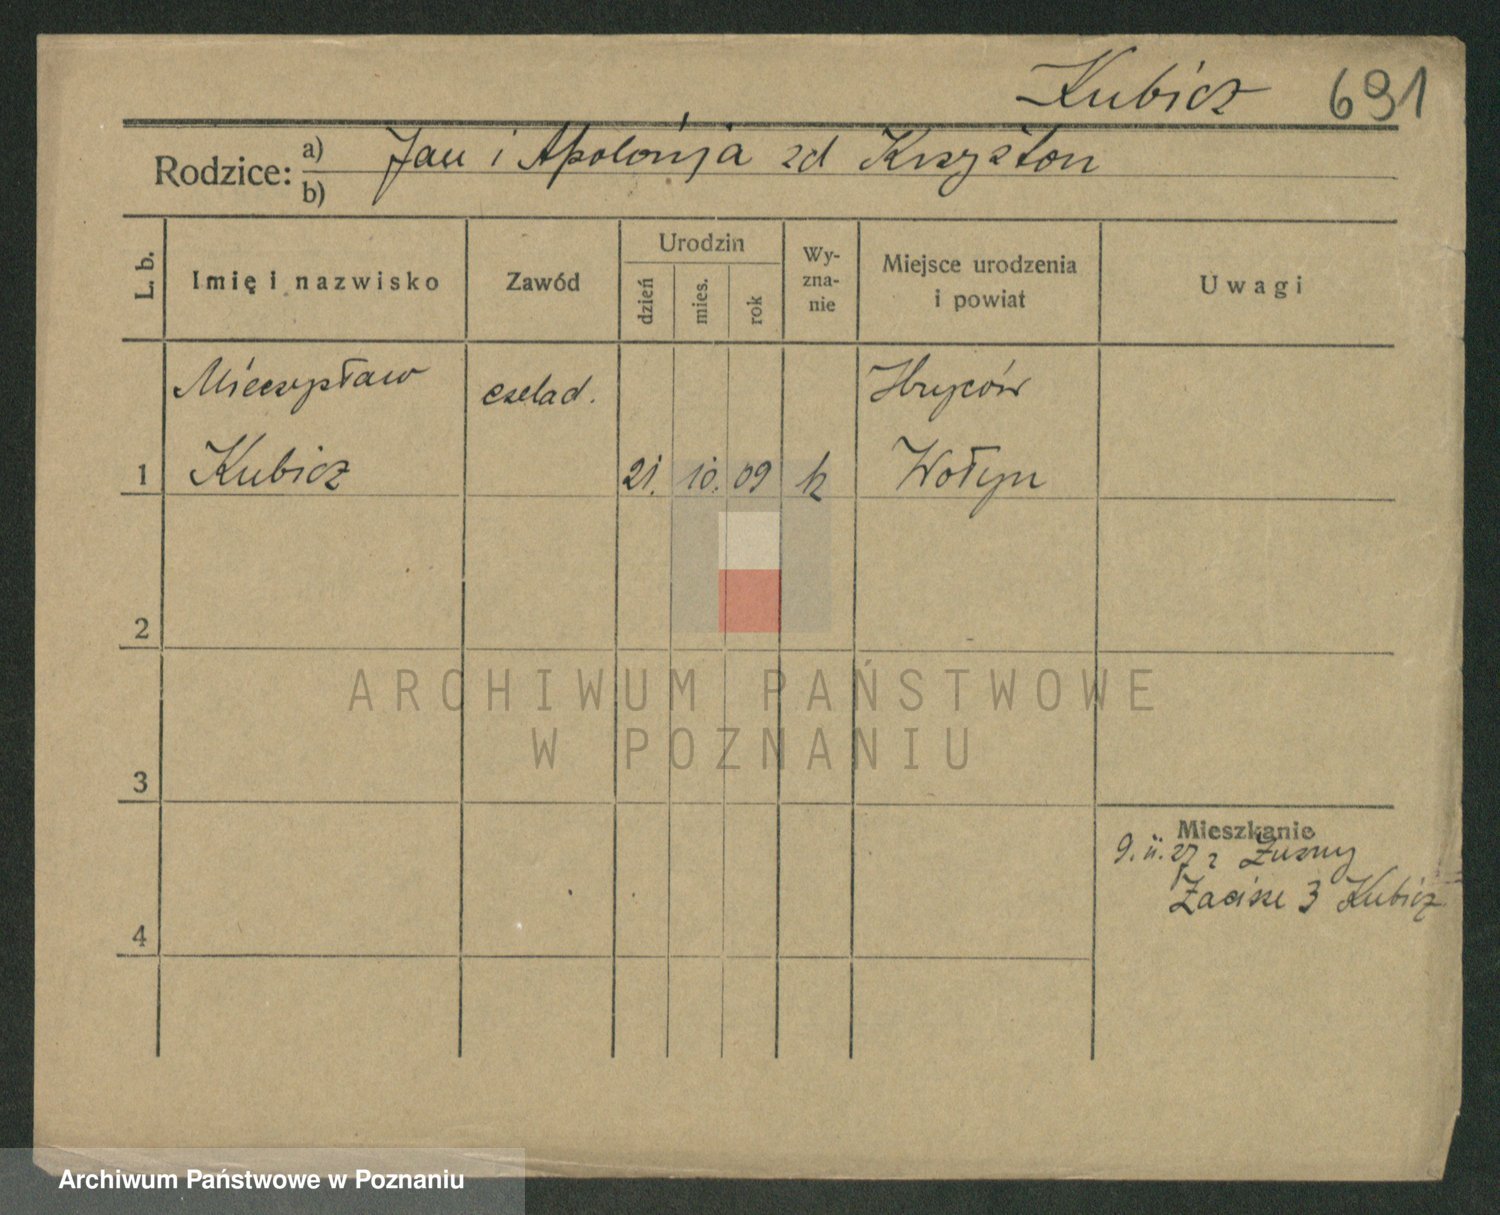 Kubicz 691
Rodzice: a) Jan i Apolonja zd Krzyżton
b)
L. b. Imię i nazwisko Zawód Urodzin dzień mies. rok Wy-zna-nie Miejsce urodzenia i powiat Uwagi
Mieczysław czelad. Hryców
1 Kubicz 21. 10. 09 k Wołyn
2
ARCHIWUM PAŃSTWOWE
W POZNANIU
3
Mieszkanie
9. II. 27 z
Zacisze 3 Kubicz
4
Archiwum Państwowe w Poznaniu